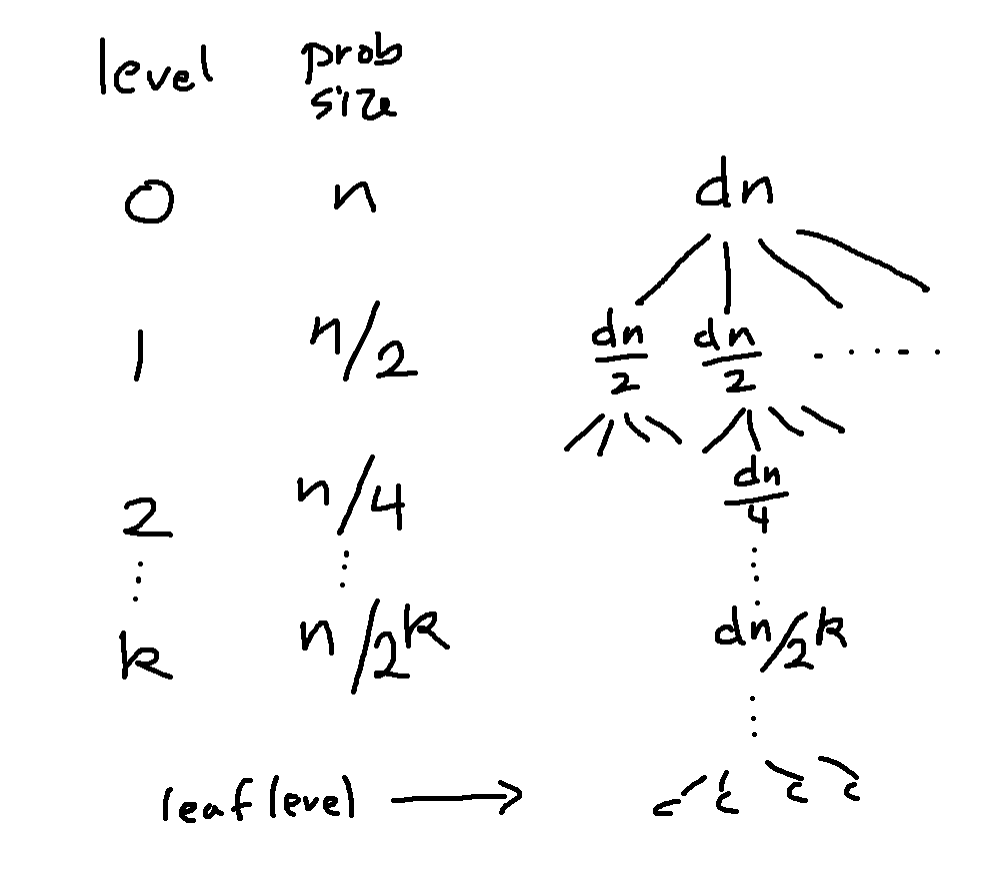 level prob size
0 n dn
1 n/2 dn/2 dn/2 .....
2 n/4 dn/4
⋮ ⋮ ⋮
k n/2^k dn/2^k
⋮
leaf level → c c c c